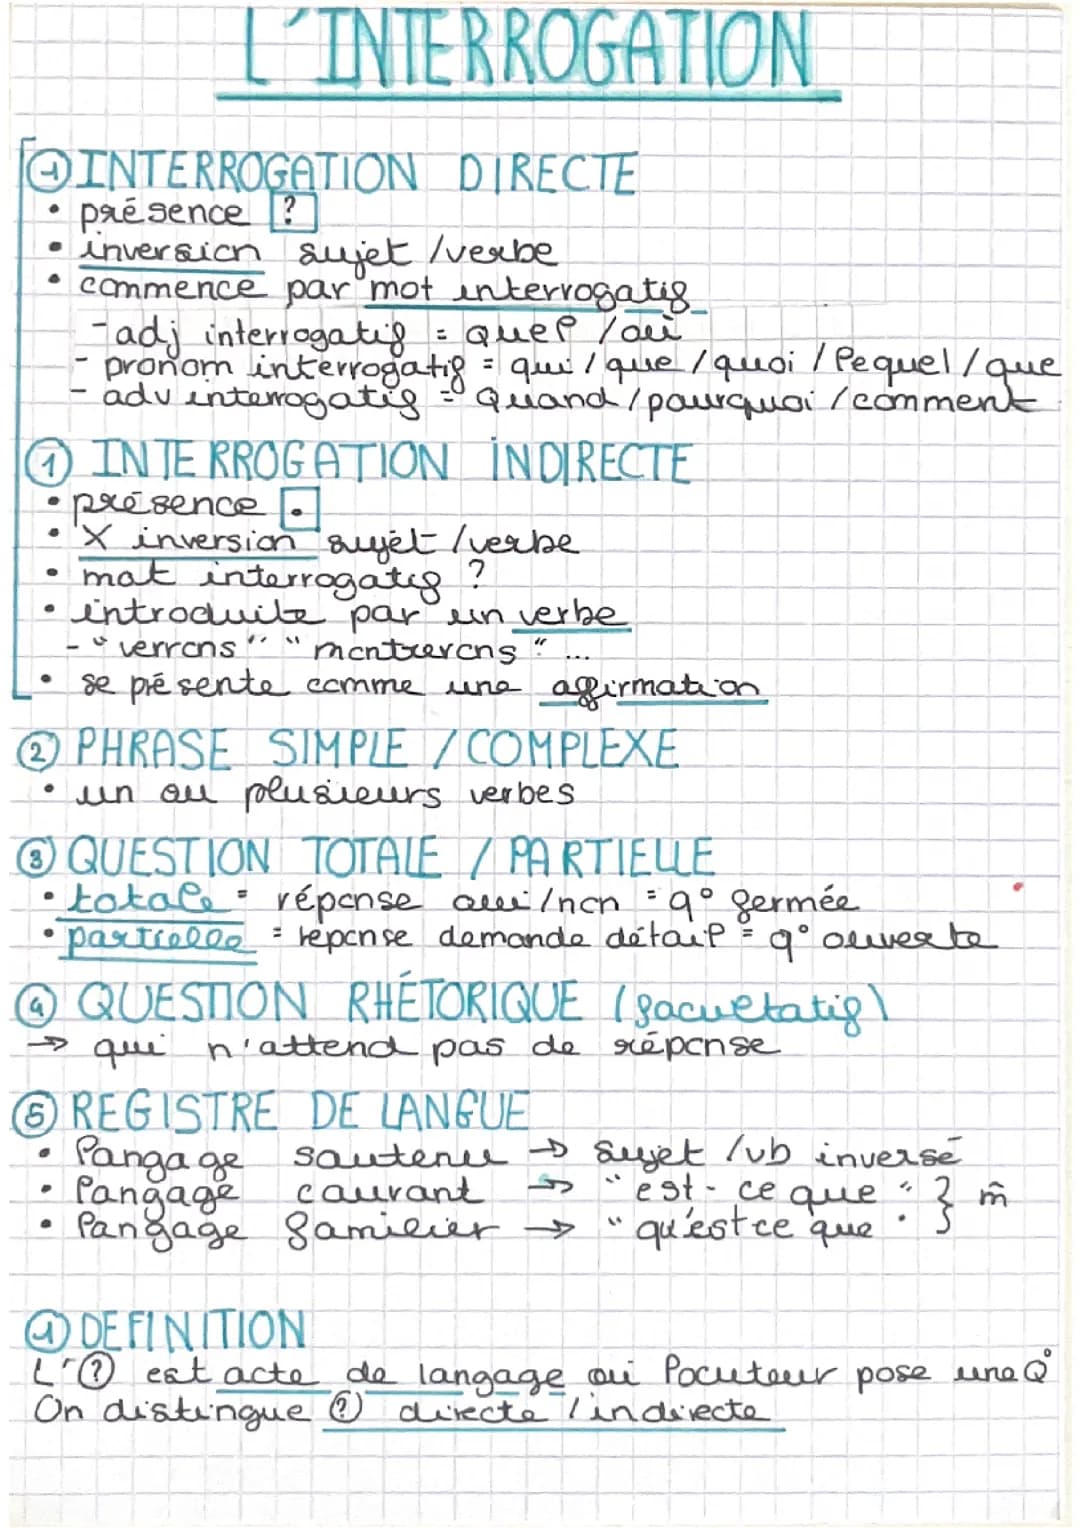 L'INTERROGATION
① INTERROGATION DIRECTE
• présence ?
• inversion sujet /verbe
• commence par mot interrogatif
- adj interrogatif = quel / où
- pronom interrogatif = qui / que / quoi / lequel / que
- adv interrogatif = Quand / pourquoi / comment
① INTERROGATION INDIRECTE
• présence .
• X inversion sujet /verbe
• mot interrogatif ?
• introduite par un verbe
- "verrons" "montrerons" ...
• se présente comme une affirmation
② PHRASE SIMPLE / COMPLEXE
• un ou plusieurs verbes
③ QUESTION TOTALE / PARTIELLE
• totale = réponse oui/non = q° fermée
• partielle = réponse demande détail = q° ouverte
④ QUESTION RHÉTORIQUE (facultatif)
→ qui n'attend pas de réponse
⑤ REGISTRE DE LANGUE
• langage soutenu → sujet /vb inversé
• langage courant → "est-ce que" } m̂
• langage familier → "qu'est ce que"
① DEFINITION
L'? est acte de langage où locuteur pose une Q°
On distingue ? directe / indirecte